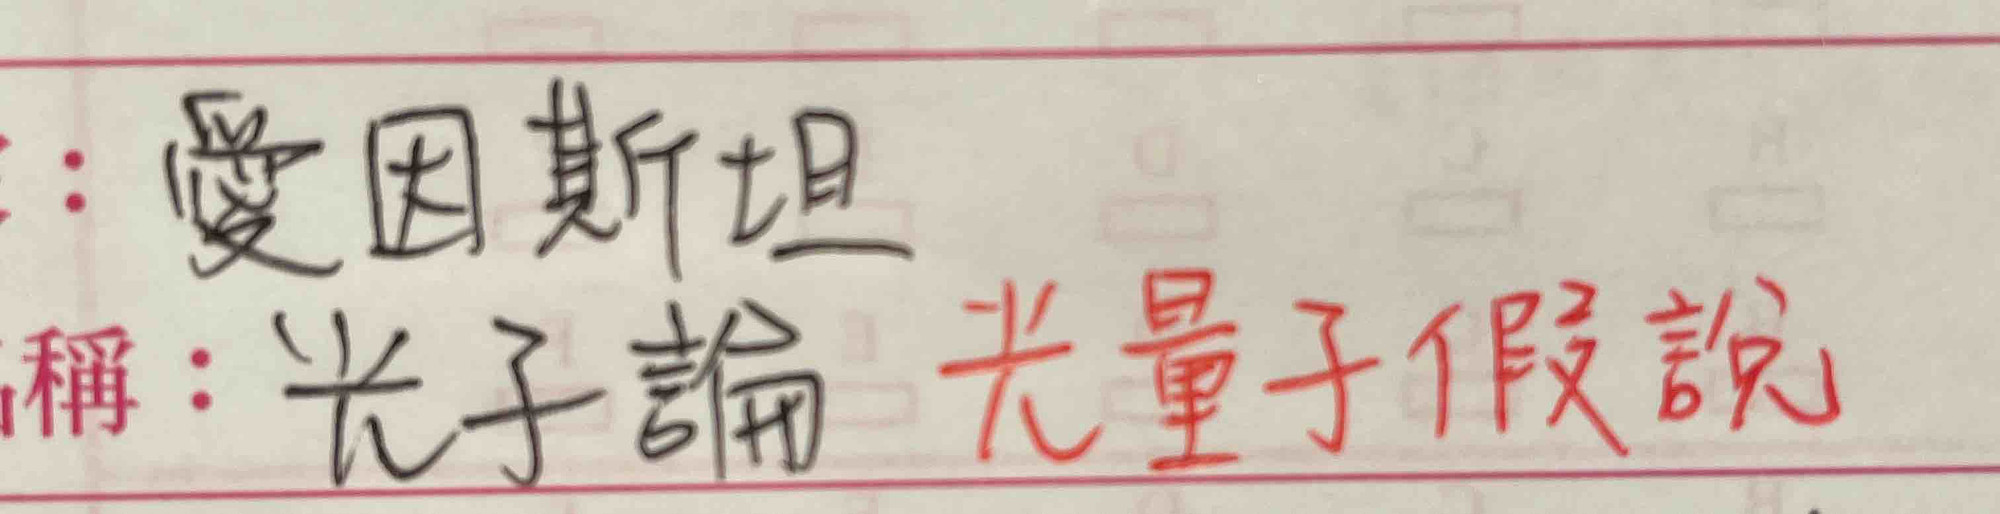 ：愛因斯坦
稱：光子論 光量子假說